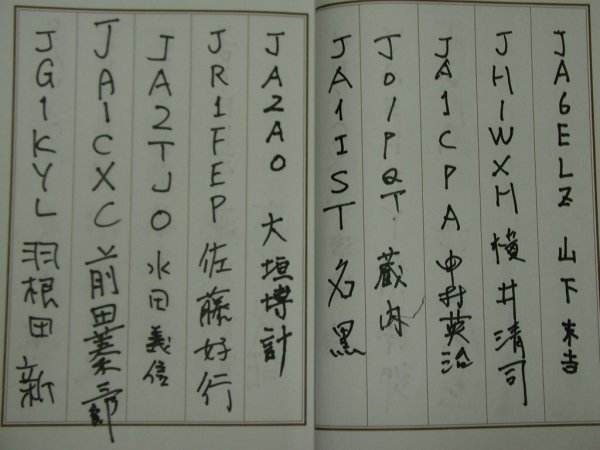 JA6ELZ 山下末吉
JH1WXH 横井清司
JA1CPA 中村英治
JO1PQT 蔵内
JA1IST 名黒
JA2AO 大垣博計
JR1FEP 佐藤好行
JA2TJO 水田義信
JA1CXC 前田三郎
JG1KYL 羽根田新